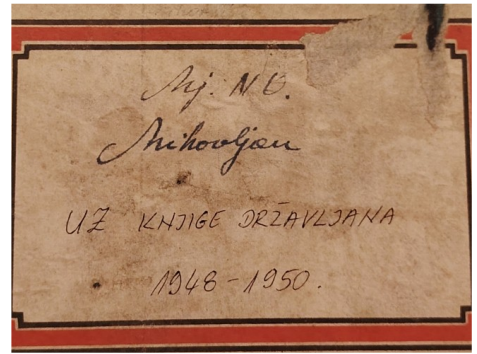 Mj. N.O.
Mihovljan
UZ KNJIGE DRŽAVLJANA
1948-1950.